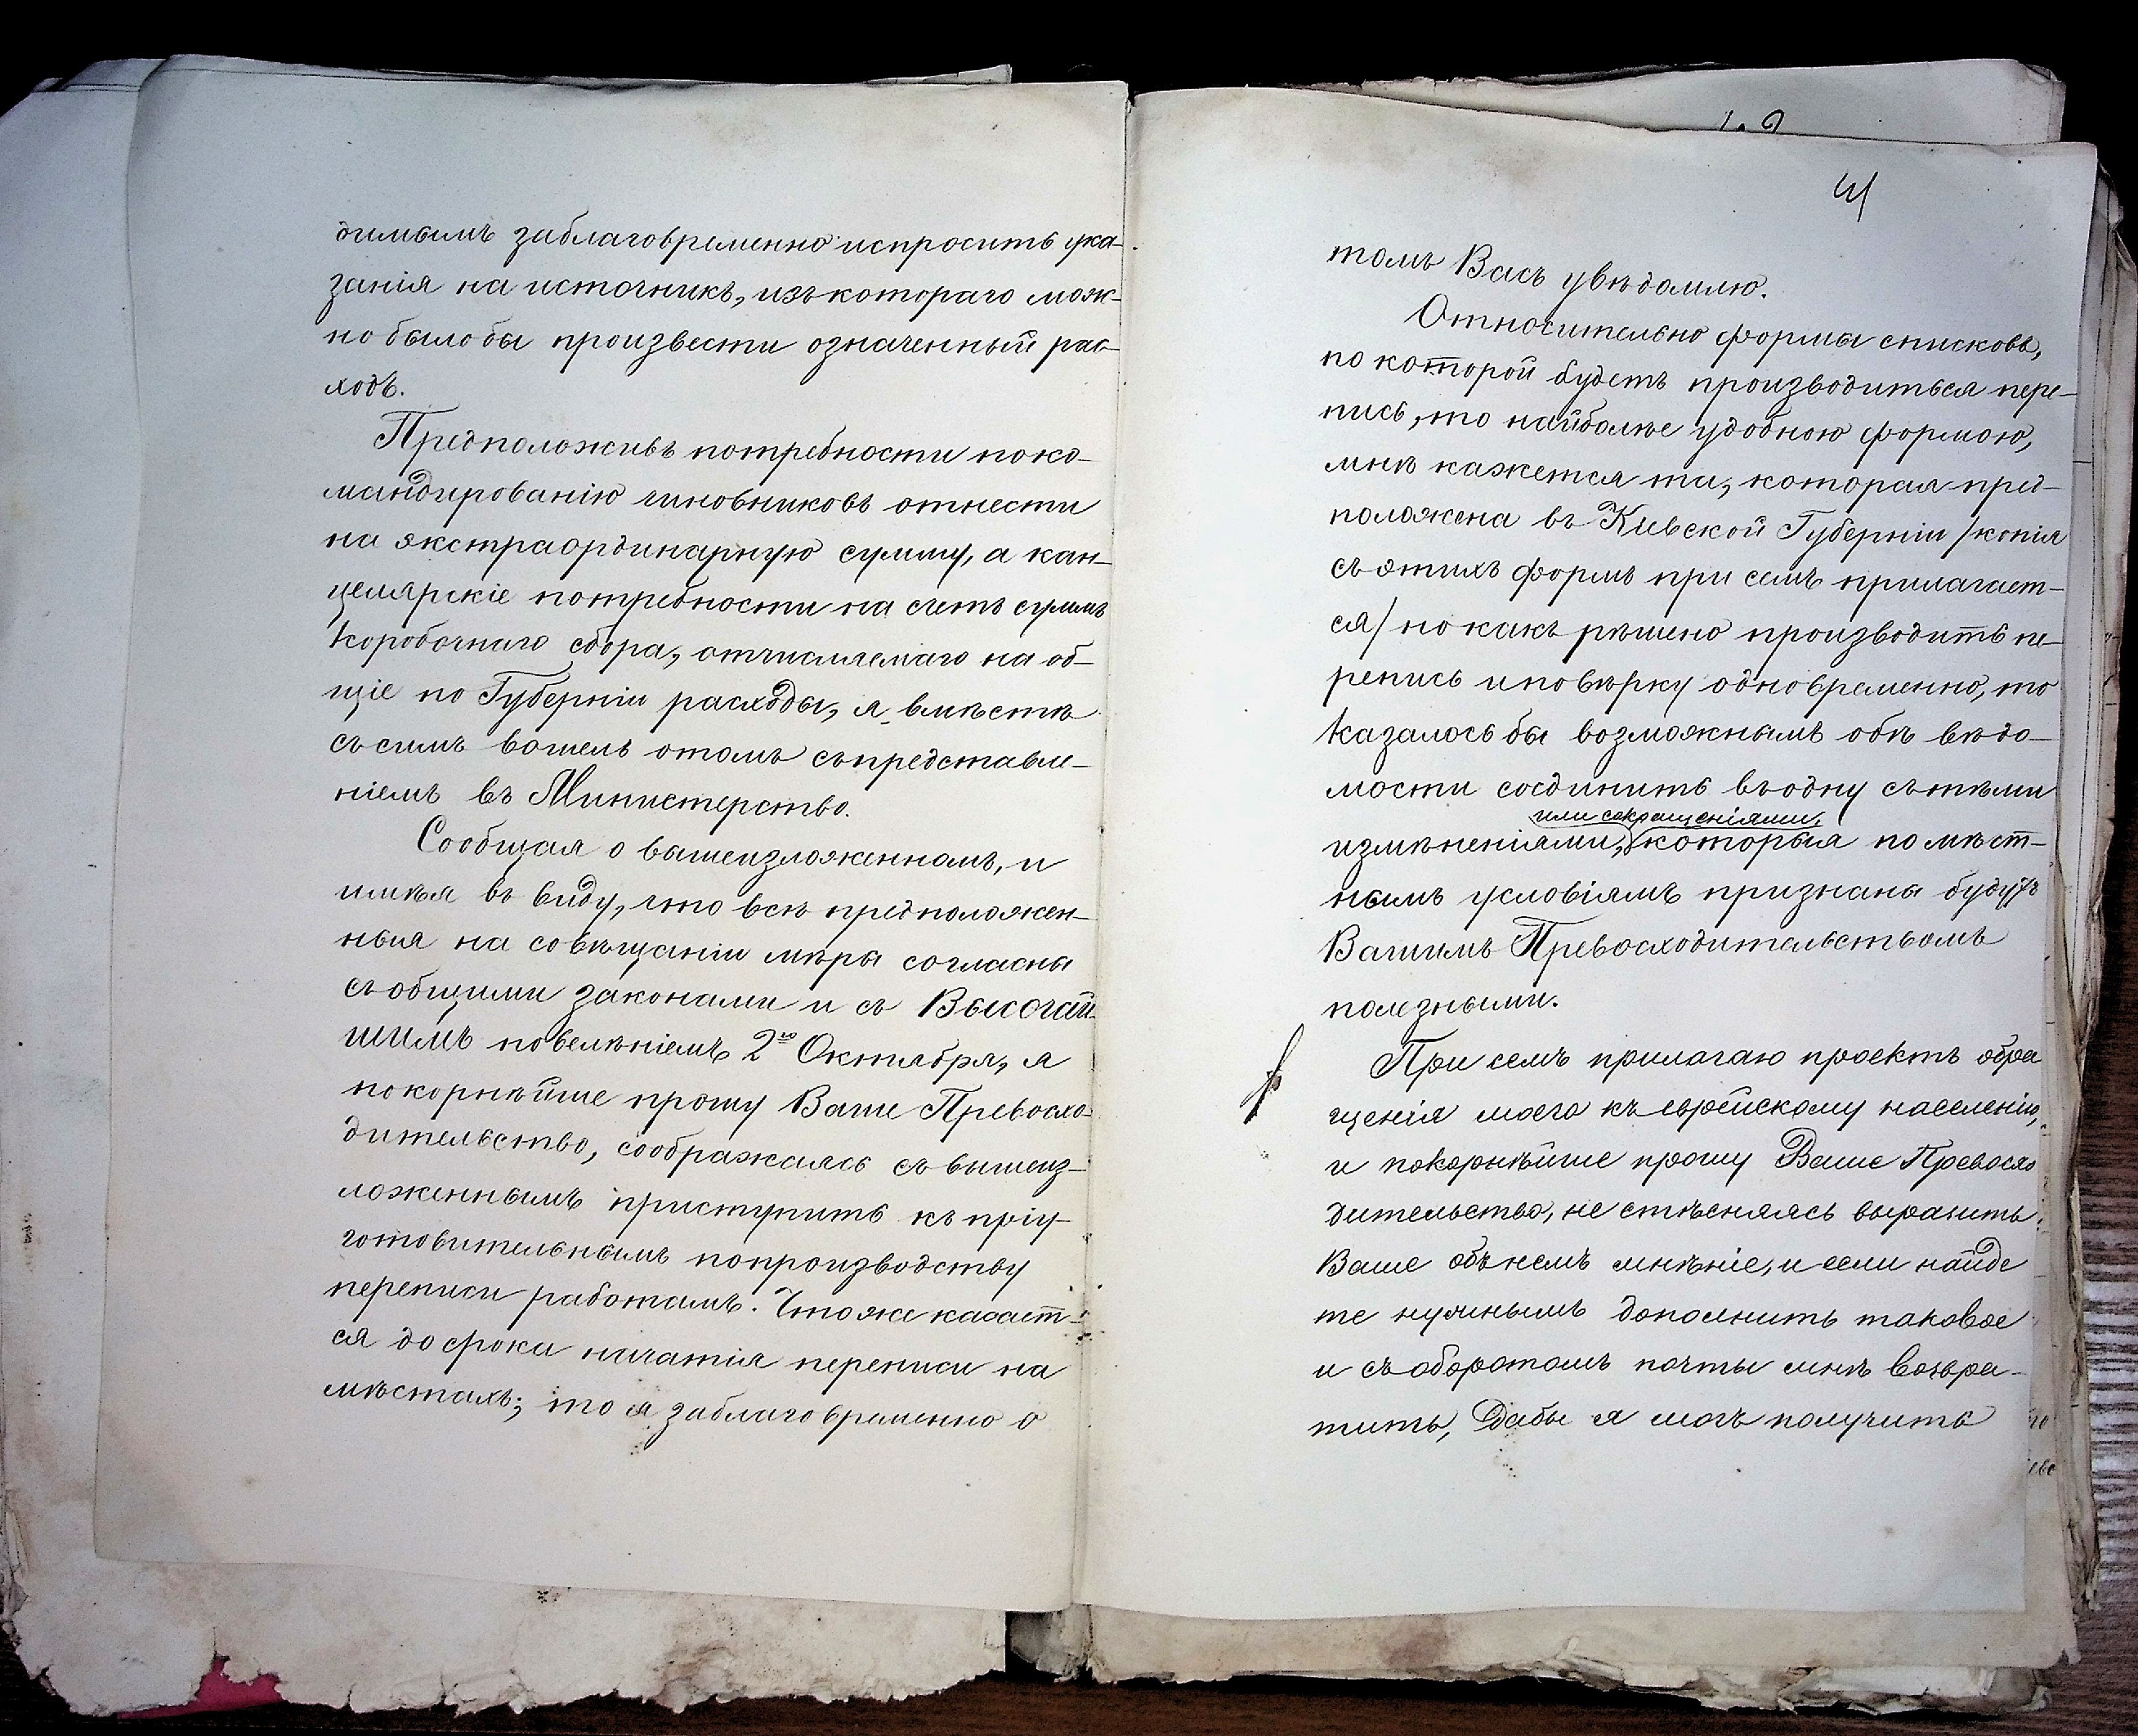 димымъ заблаговременно испросить ука-
занія на источникъ, изъ котораго мож-
но было бы произвести означенный рас-
ходъ.
Предположивъ потребности по ко-
мандированію чиновниковъ отнести
на экстраординарную сумму, а кан-
целярскіе потребности на счетъ суммъ
коробочнаго сбора, отчисляемаго на об-
щіе по Губерніи расходы, я вмѣстѣ
съ симъ вошелъ о томъ съ представле-
ніемъ въ Министерство.
Сообщая о вышеизложенномъ, и
имѣя въ виду, что всѣ предположен-
ныя на совѣщаніи мѣры согласны
съ общими законами и съ Высочай-
шимъ повелѣніемъ 2го Октября, я
покорнѣйше прошу Ваше Превосхо-
дительство, соображаясь съ вышеиз-
ложеннымъ приступить къ пріу-
готовительнымъ по производству
переписи работамъ. Что же касает-
ся до срока начатія переписи на
мѣстахъ; то я заблаговременно о
4
томъ Васъ увѣдомлю.
Относительно формы списковъ,
по которой будетъ производиться пере-
пись, то наиболѣе удобною формою,
мнѣ кажется та, которая пред-
положена въ Кіевской Губерніи /копія
съ этихъ формъ при семъ прилагает-
ся/ но какъ рѣшено производить пе-
репись и повѣрку одновременно, то
казалось бы возможнымъ обѣ вѣдо-
мости соединить въ одну съ тѣми
или сокращеніями,
измѣненіями, которыя по мѣст-
нымъ условіямъ признаны будутъ
Вашимъ Превосходительствомъ
полезными.
При семъ прилагаю проектъ обра
щенія моего къ еврейскому населенію,
и покорнѣйше прошу Ваше Превосхо
дительство, не стѣсняясь выразить
Ваше объ немъ мнѣніе, и если найде
те нужнымъ дополнить таковое
и съ оборотомъ почты мнѣ возвра-
тить, дабы я могъ получить